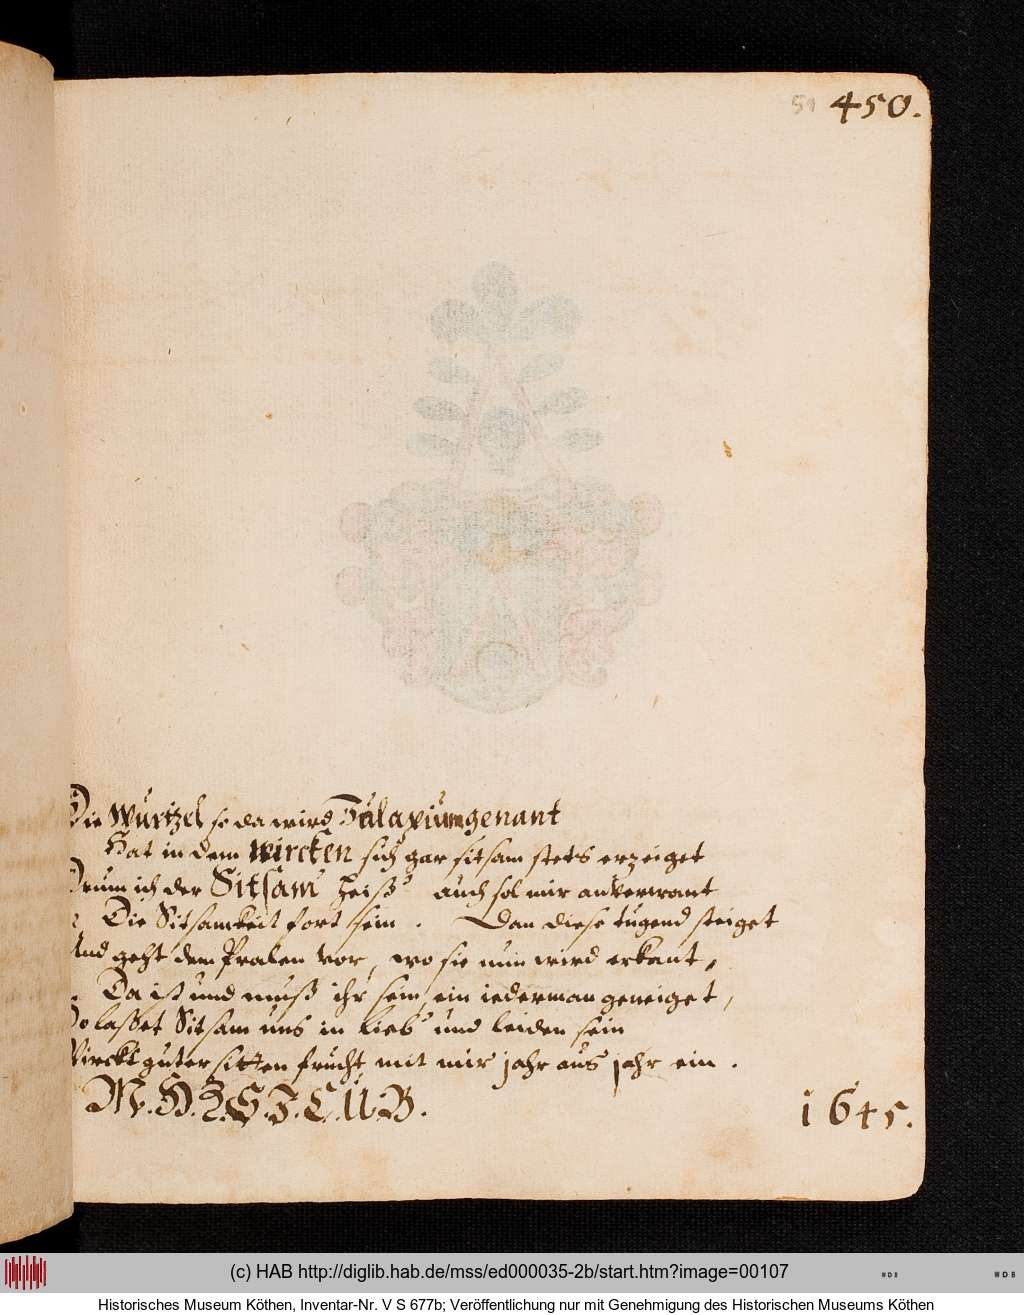 51 450.
Die Wurtzel so da wird Tulapium genant
Hat in dem wircken sich gar sitsam stets erzeiget
Drum ich der Sitsam heiß auch sol mir anverwant
Die Sitsamkeit fort sein . Dan diese tugend steiget
Und geht dem Pralen vor, wo sie nuin wird erkant,
Da ist und muß ihr sein ein iederman geneiget,
So lasset Sitsam uns in lieb' und leiden sein
Wirckt guter sitten frucht mit mir jahr aus jahr ein .
M. H. Z. S. J. C. U. B.
1645.
(c) HAB http://diglib.hab.de/mss/ed000035-2b/start.htm?image=00107
WDB
WDB
Historisches Museum Köthen, Inventar-Nr. V S 677b; Veröffentlichung nur mit Genehmigung des Historischen Museums Köthen